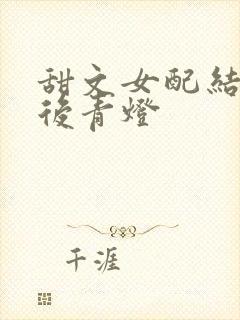 甜文女配結
後青燈
千涯